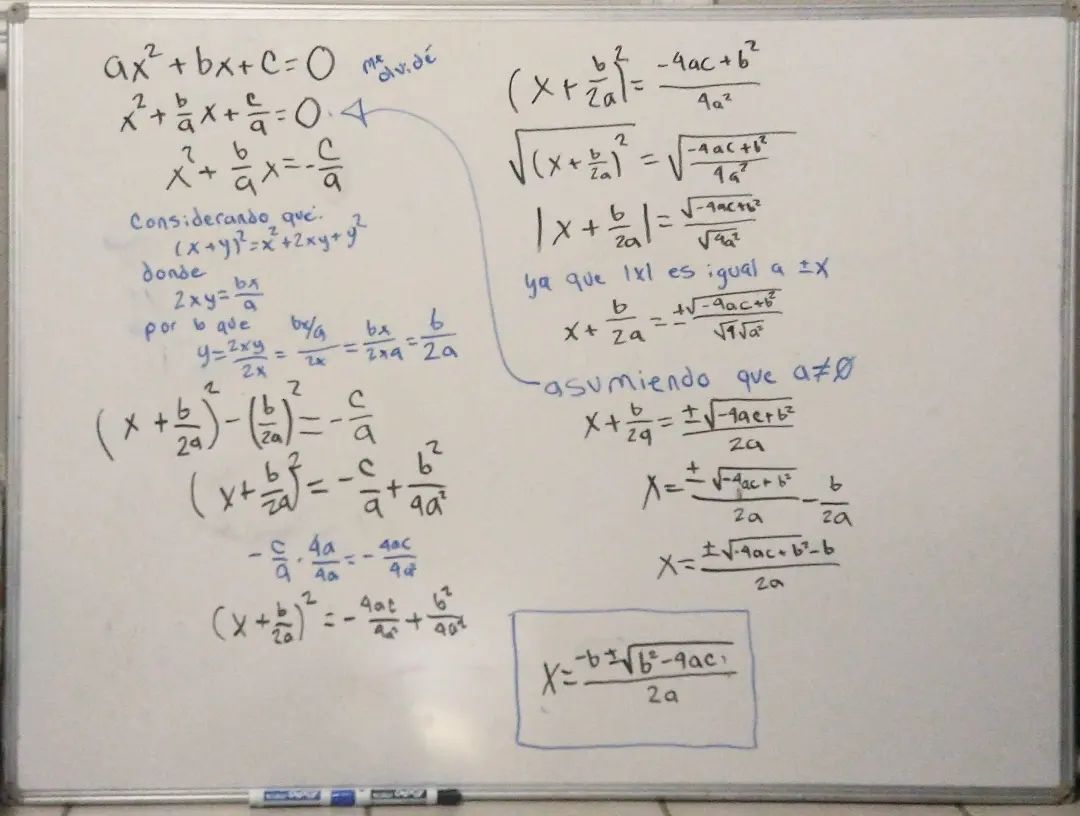 ax² + bx + c = 0
me dividé
x² + b/a x + c/a = 0
x² + b/a x = - c/a
Considerando que:
(x + y)² = x² + 2xy + y²
donde
2xy = bx/a
por lo que
y = 2xy/2x = bx/a/2x = bx/2xa = b/2a
(x + b/2a)² - (b/2a)² = - c/a
(x + b/2a)² = - c/a + b²/4a²
- c/a · 4a/4a = - 4ac/4a²
(x + b/2a)² = - 4ac/4a² + b²/4a²
(x + b/2a)² = -4ac + b²/4a²
√(x + b/2a)² = √-4ac + b²/4a²
|x + b/2a| = √-4ac + b²/√4a²
ya que |x| es igual a ±x
x + b/2a = ±√-4ac + b²/√4√a²
asumiendo que a ≠ 0
x + b/2a = ±√-4ac + b²/2a
x = ±√-4ac + b²/2a - b/2a
x = ±√-4ac + b² - b/2a
x = -b ± √b² - 4ac/2a